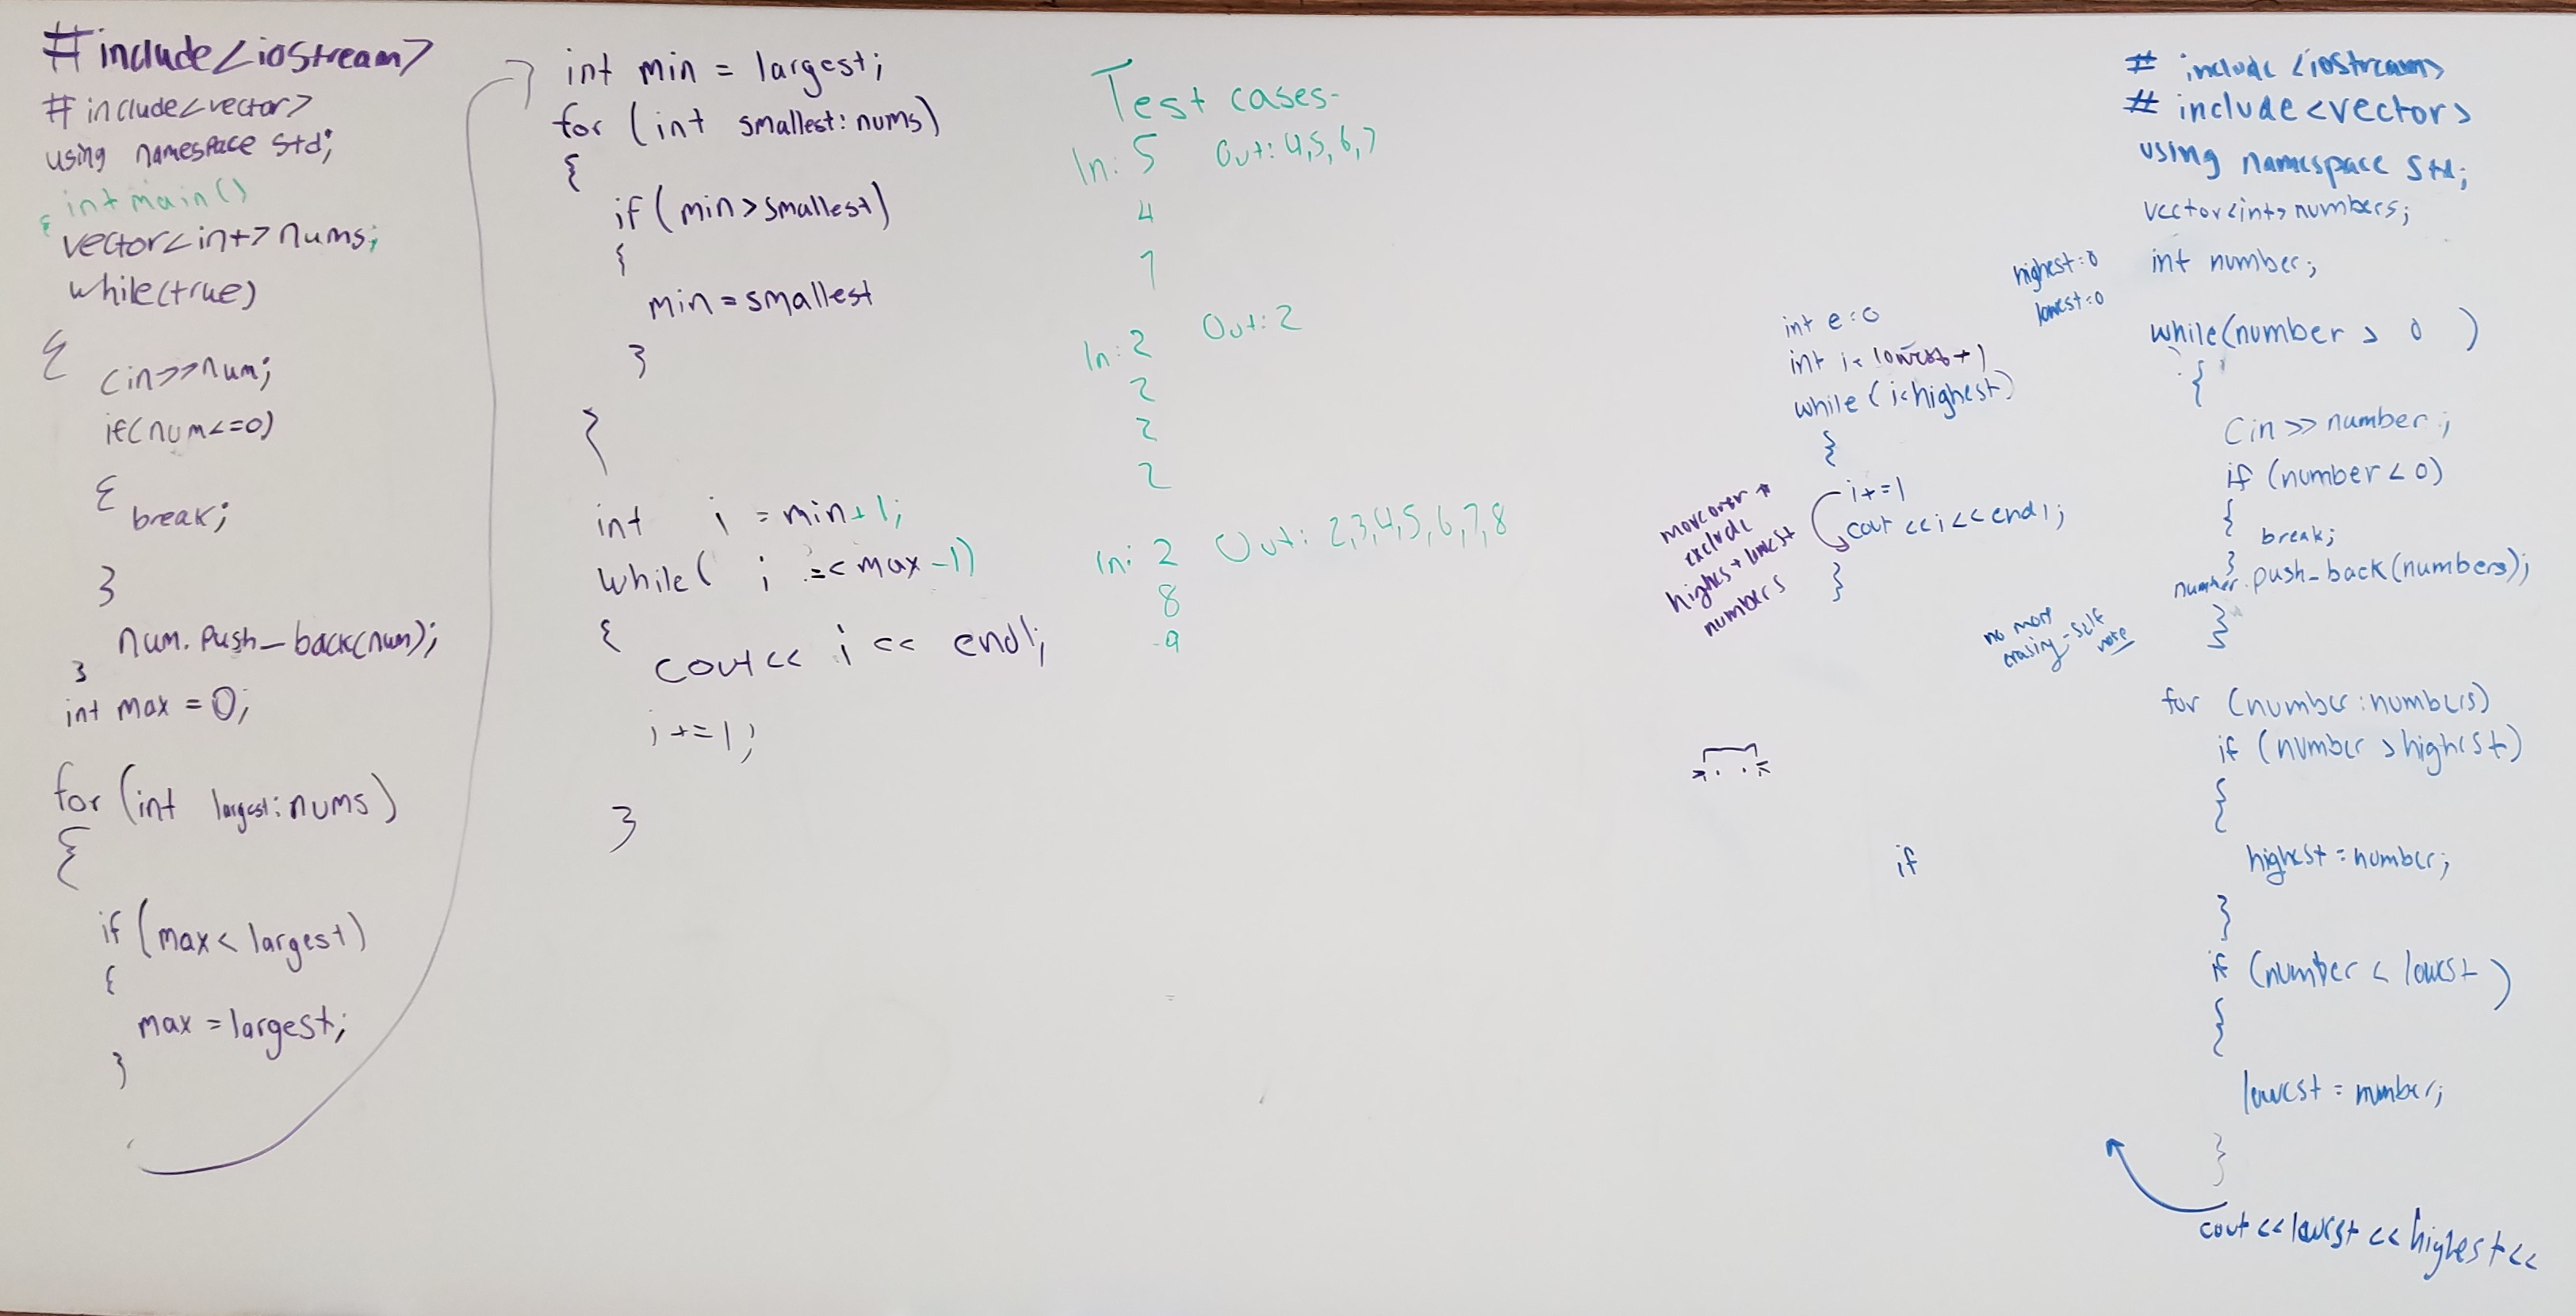 #include<iostream>
#include<vector>
using namespace std;
int main()
{
vector<int> nums;
while(true)
{
cin>>num;
if(num<=0)
{
break;
}
num.push_back(num);
}
int max = 0;
for (int largest: nums)
{
if (max < largest)
{
max = largest;
}
int min = largest;
for (int smallest: nums)
{
if (min > smallest)
{
min = smallest
}
}
int i = min+1;
while( i =< max -1)
{
cout << i << endl;
i+=1;
}
Test cases-
In: 5 Out: 4,5,6,7
4
7
In: 2 Out: 2
2
2
2
In: 2 Out: 2,3,4,5,6,7,8
8
-9
int e=0
int i= lowest+1
while (i<highest)
{
i+=1
cout <<i<<endl;
}
move over *
exclude
highest + lowest
numbers
if
highest=0
lowest=0
# include <iostream>
# include <vector>
using namespace std;
vector<int> numbers;
int number;
while(number > 0 )
{
cin >> number;
if (number < 0)
{
break;
}
number.push_back(numbers);
}
no more
erasing - self
note
for (number:numbers)
if (number > highest)
{
highest = number;
}
if (number < lowest )
{
lowest = number;
}
cout << lowest << highest <<